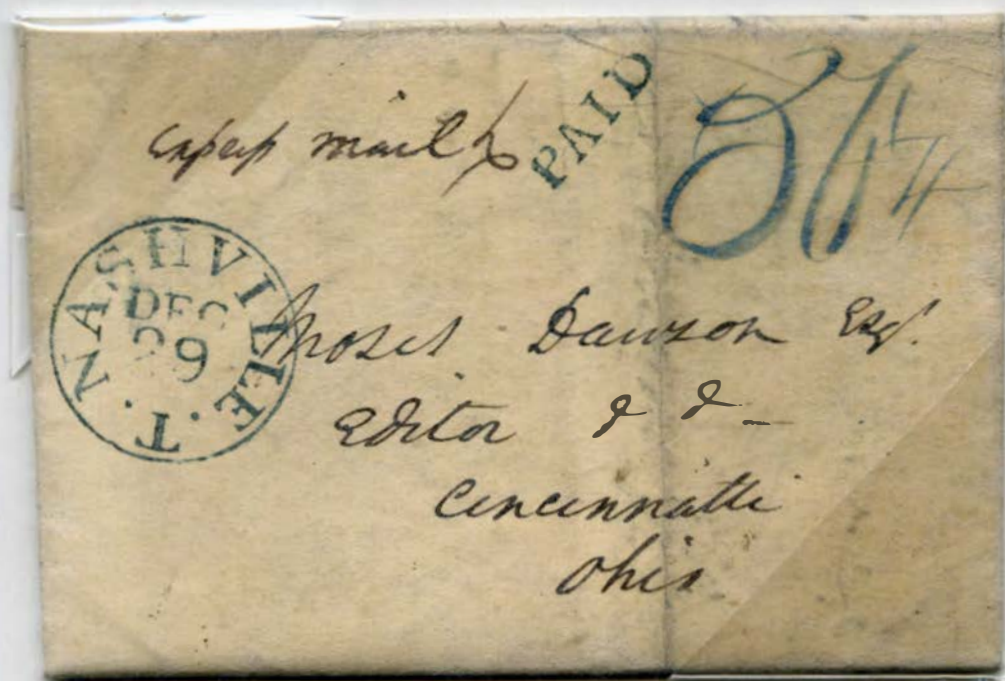 Express mail
PAID
NASHVILLE. T.
DEC
29
Moses Dawson Esqr.
Editor & &
Cincinnatti
Ohio